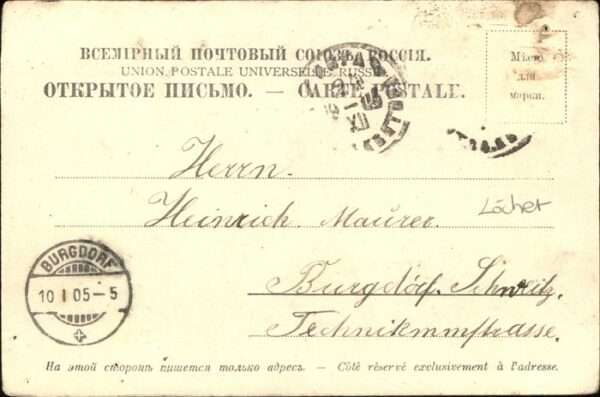 ВСЕМІРНЫЙ ПОЧТОВЫЙ СОЮЗЪ. РОССІЯ.
UNION POSTALE UNIVERSELLE. RUSSIE
ОТКРЫТОЕ ПИСЬМО. — CARTE POSTALE.
Мѣсто
для
марки.
Herrn.
Heinrich. Maurer.
Löcher
BURGDORF
10 I 05-5
Burgdöf. Schweitz.
Technikummstrasse.
На этой сторонѣ пишется только адресъ. — Côté réservé exclusivement à l'adresse.